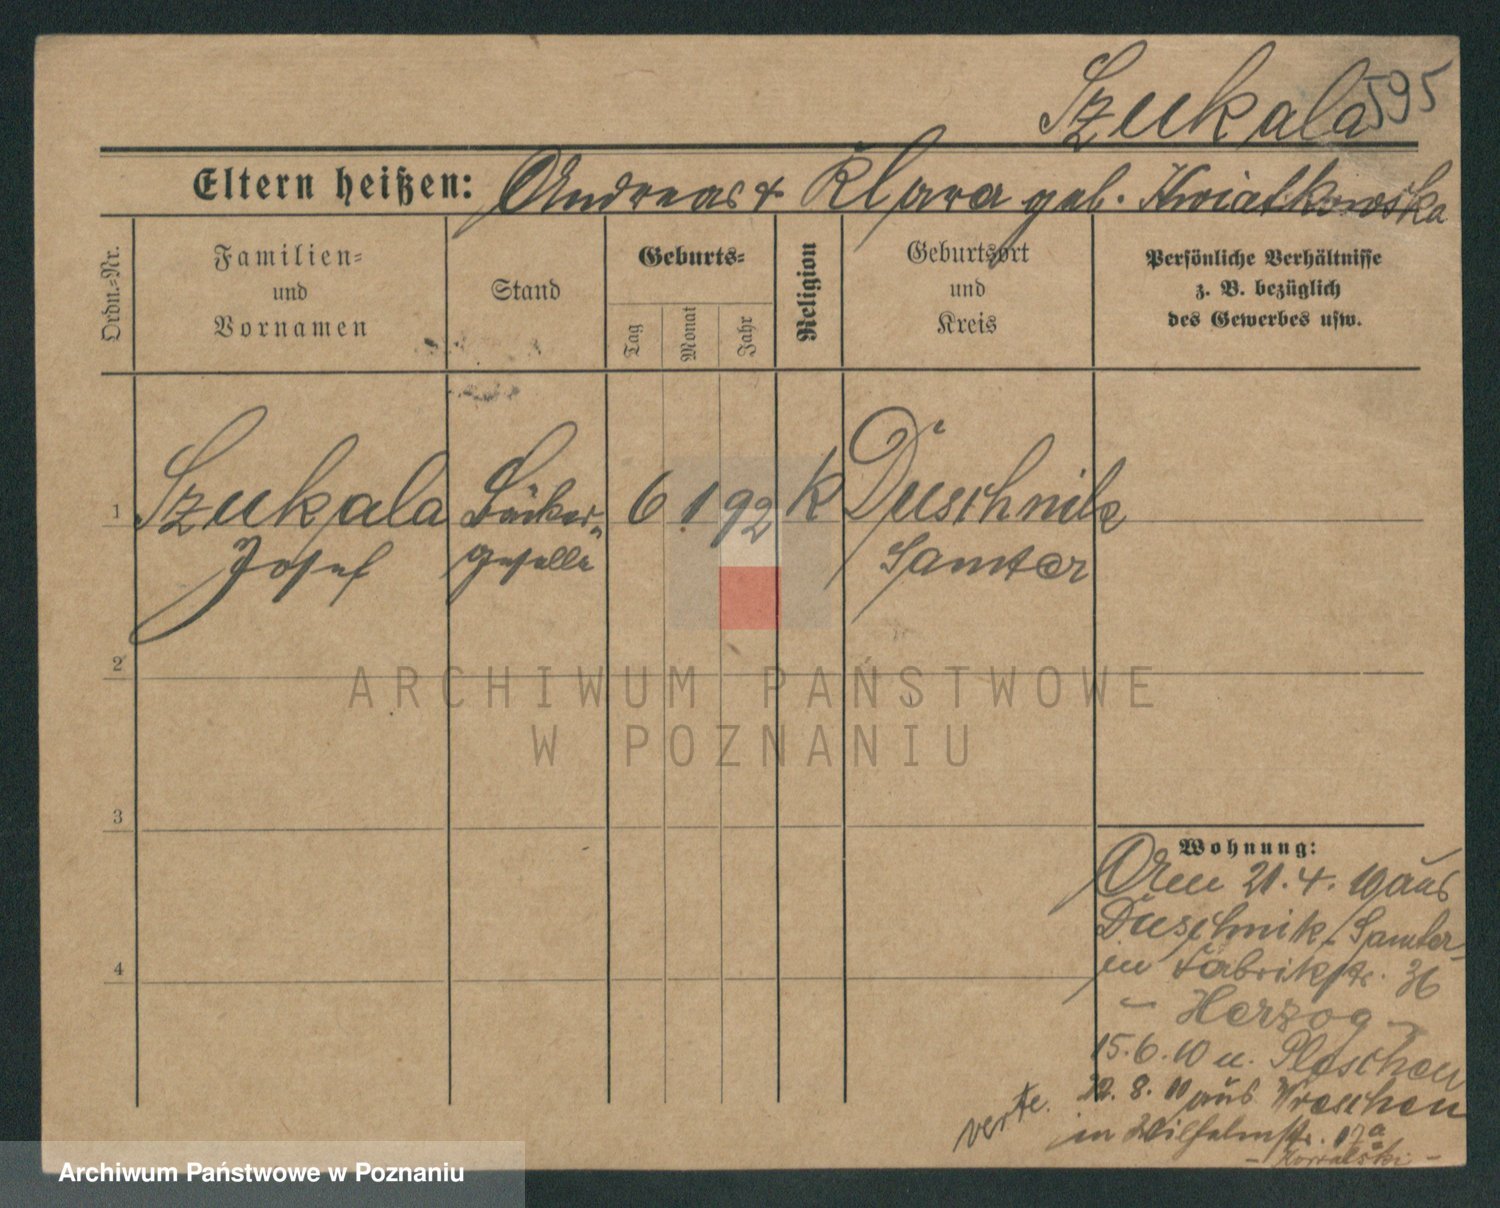 Szukala 595
Eltern heißen: Andreas & Klara geb. Kwiatkowska
Ordn.-Nr.
Familien-
und
Vornamen
Stand
Geburts-
Tag
Monat
Jahr
Religion
Geburtsort
und
Kreis
Persönliche Verhältnisse
z. B. bezüglich
des Gewerbes usw.
1 Szukala Bäcker- 6. 1 92 k Duschnik
Josef geselle Samter
2
3
4
Wohnung:
21. 4. 10 aus
Duschnik-Samter
in Fabrikstr. 36
- Herzog -
15. 6. 10 n. Pleschen
22. 8. 10 aus Wreschen
in Wilhelmstr. 17a
- Kowalski -
verte.
ARCHIWUM PAŃSTWOWE
W POZNANIU
Archiwum Państwowe w Poznaniu